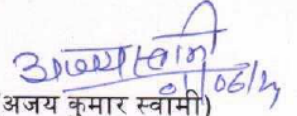 अजय स्वामी
01/06/2
अजय कुमार स्वामी)